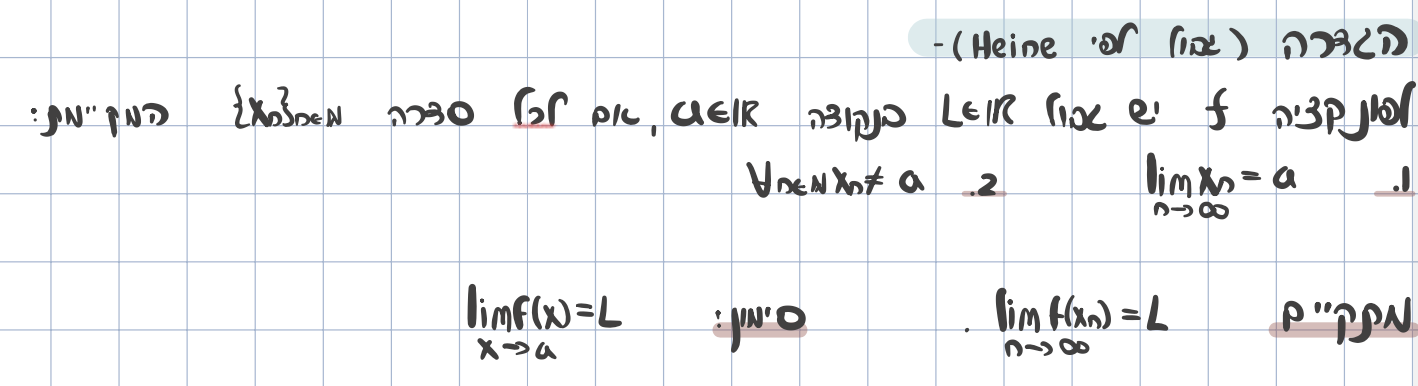 הגדרה (גבול לפי Heine)-
לפונקציה f יש גבול L∈ℝ בנקודה a∈ℝ, אם לכל סדרה {xₙ}ₙ∈ℕ המקיימת:
1. lim xₙ = a n→∞ 2. ∀n∈ℕ xₙ ≠ a
מתקיים lim f(xₙ) = L n→∞ . סימון: lim f(x) = L x→a